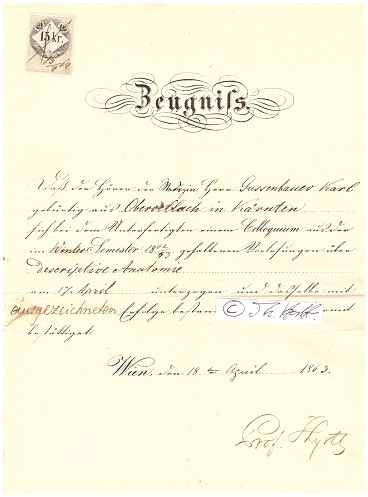 15 kr.
Zeugniß.
Daß der Hörer der Medizin Herr Gussenbauer Karl
gebürtig aus Obervellach in Kärnten
sich bei dem Unterfertigten einem Colloquium aus den
im Winter-Semester 1862/63 gehaltenen Vorlesungen über
descriptive Anatomie
am 17. April unterzogen und dasselbe mit
ausgezeichneten Erfolge bestanden
bestättiget.
Wien, den 18 ten April 1863.
Prof. Hyrtl